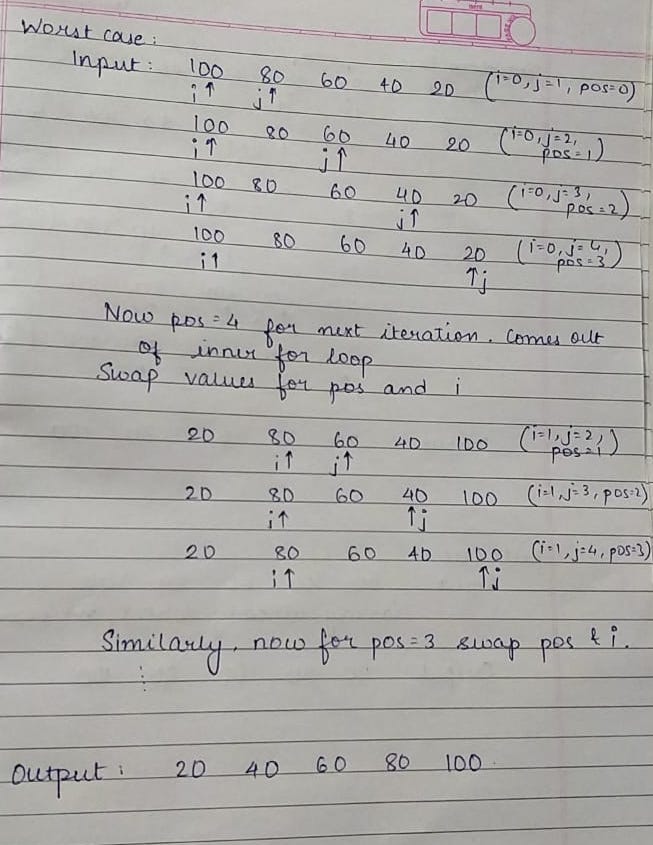 Worst case:
Input: 100 80 60 40 20 (i=0, j=1, pos=0)
i↑ j↑
100 80 60 40 20 (i=0, j=2, pos=1)
i↑ j↑
100 80 60 40 20 (i=0, j=3, pos=2)
i↑ j↑
100 80 60 40 20 (i=0, j=4, pos=3)
i↑ ↑j
Now pos=4 for next iteration. Comes out
of inner for loop
Swap values for pos and i
20 80 60 40 100 (i=1, j=2, pos=1)
i↑ j↑
20 80 60 40 100 (i=1, j=3, pos=2)
i↑ ↑j
20 80 60 40 100 (i=1, j=4, pos=3)
i↑ ↑j
Similarly, now for pos=3 swap pos & i.
⋮
Output: 20 40 60 80 100